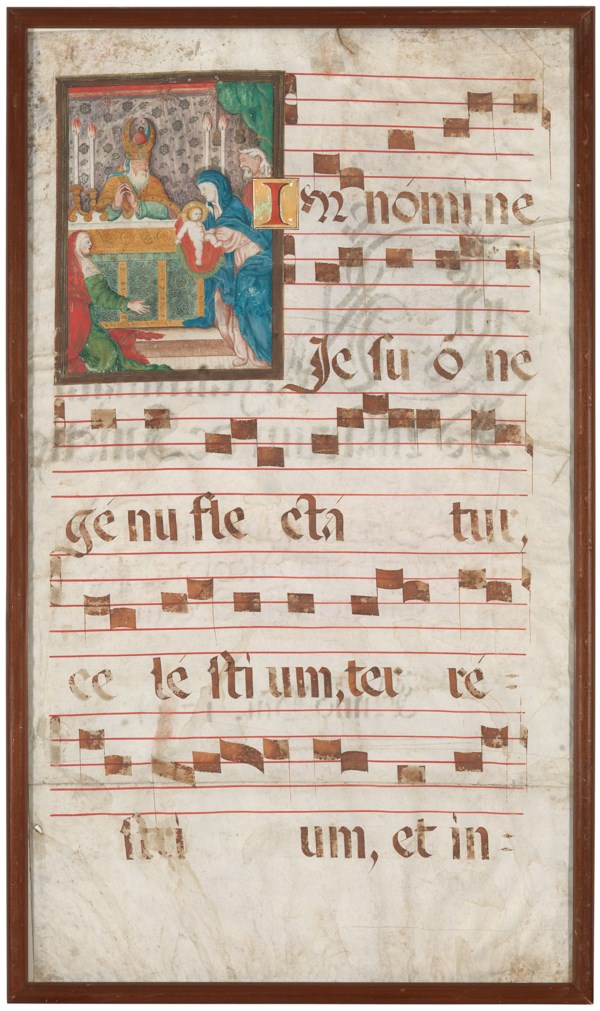 In nómi ne
Je su ó ne
gé nu fle ctá tur,
ce lé sti um, ter ré =
stri um, et in =